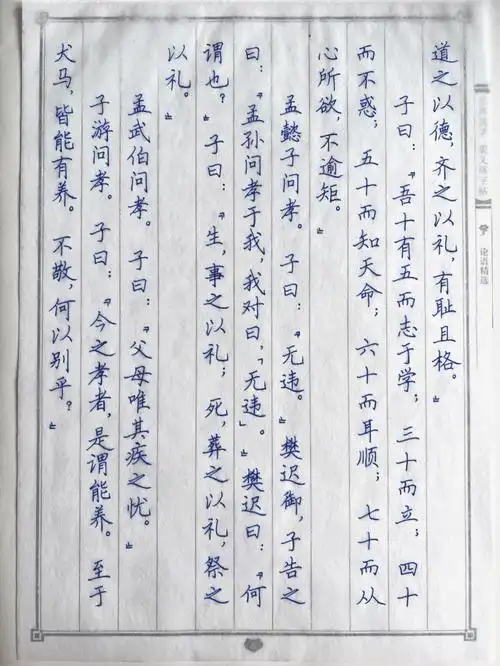 道之以德，齐之以礼，有耻且格。”
子曰：“吾十有五而志于学；三十而立；四十
而不惑；五十而知天命；六十而耳顺；七十而从
心所欲，不逾矩。”
孟懿子问孝。子曰：“无违。”樊迟御，子告之
曰：“孟孙问孝于我，我对曰，‘无违’。”樊迟曰：“何
谓也？”子曰：“生，事之以礼；死，葬之以礼，祭之
以礼。”
孟武伯问孝。子曰：“父母唯其疾之忧。”
子游问孝。子曰：“今之孝者，是谓能养。至于
犬马，皆能有养。不敬，何以别乎？”
论语精选